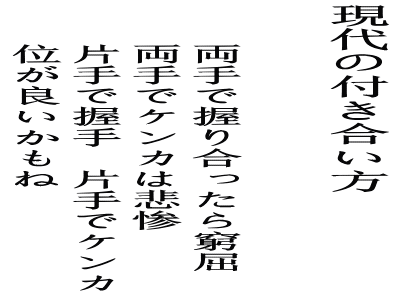 現代の付き合い方
両手で握り合ったら窮屈
両手でケンカは悲惨
片手で握手　片手でケンカ
位が良いかもね